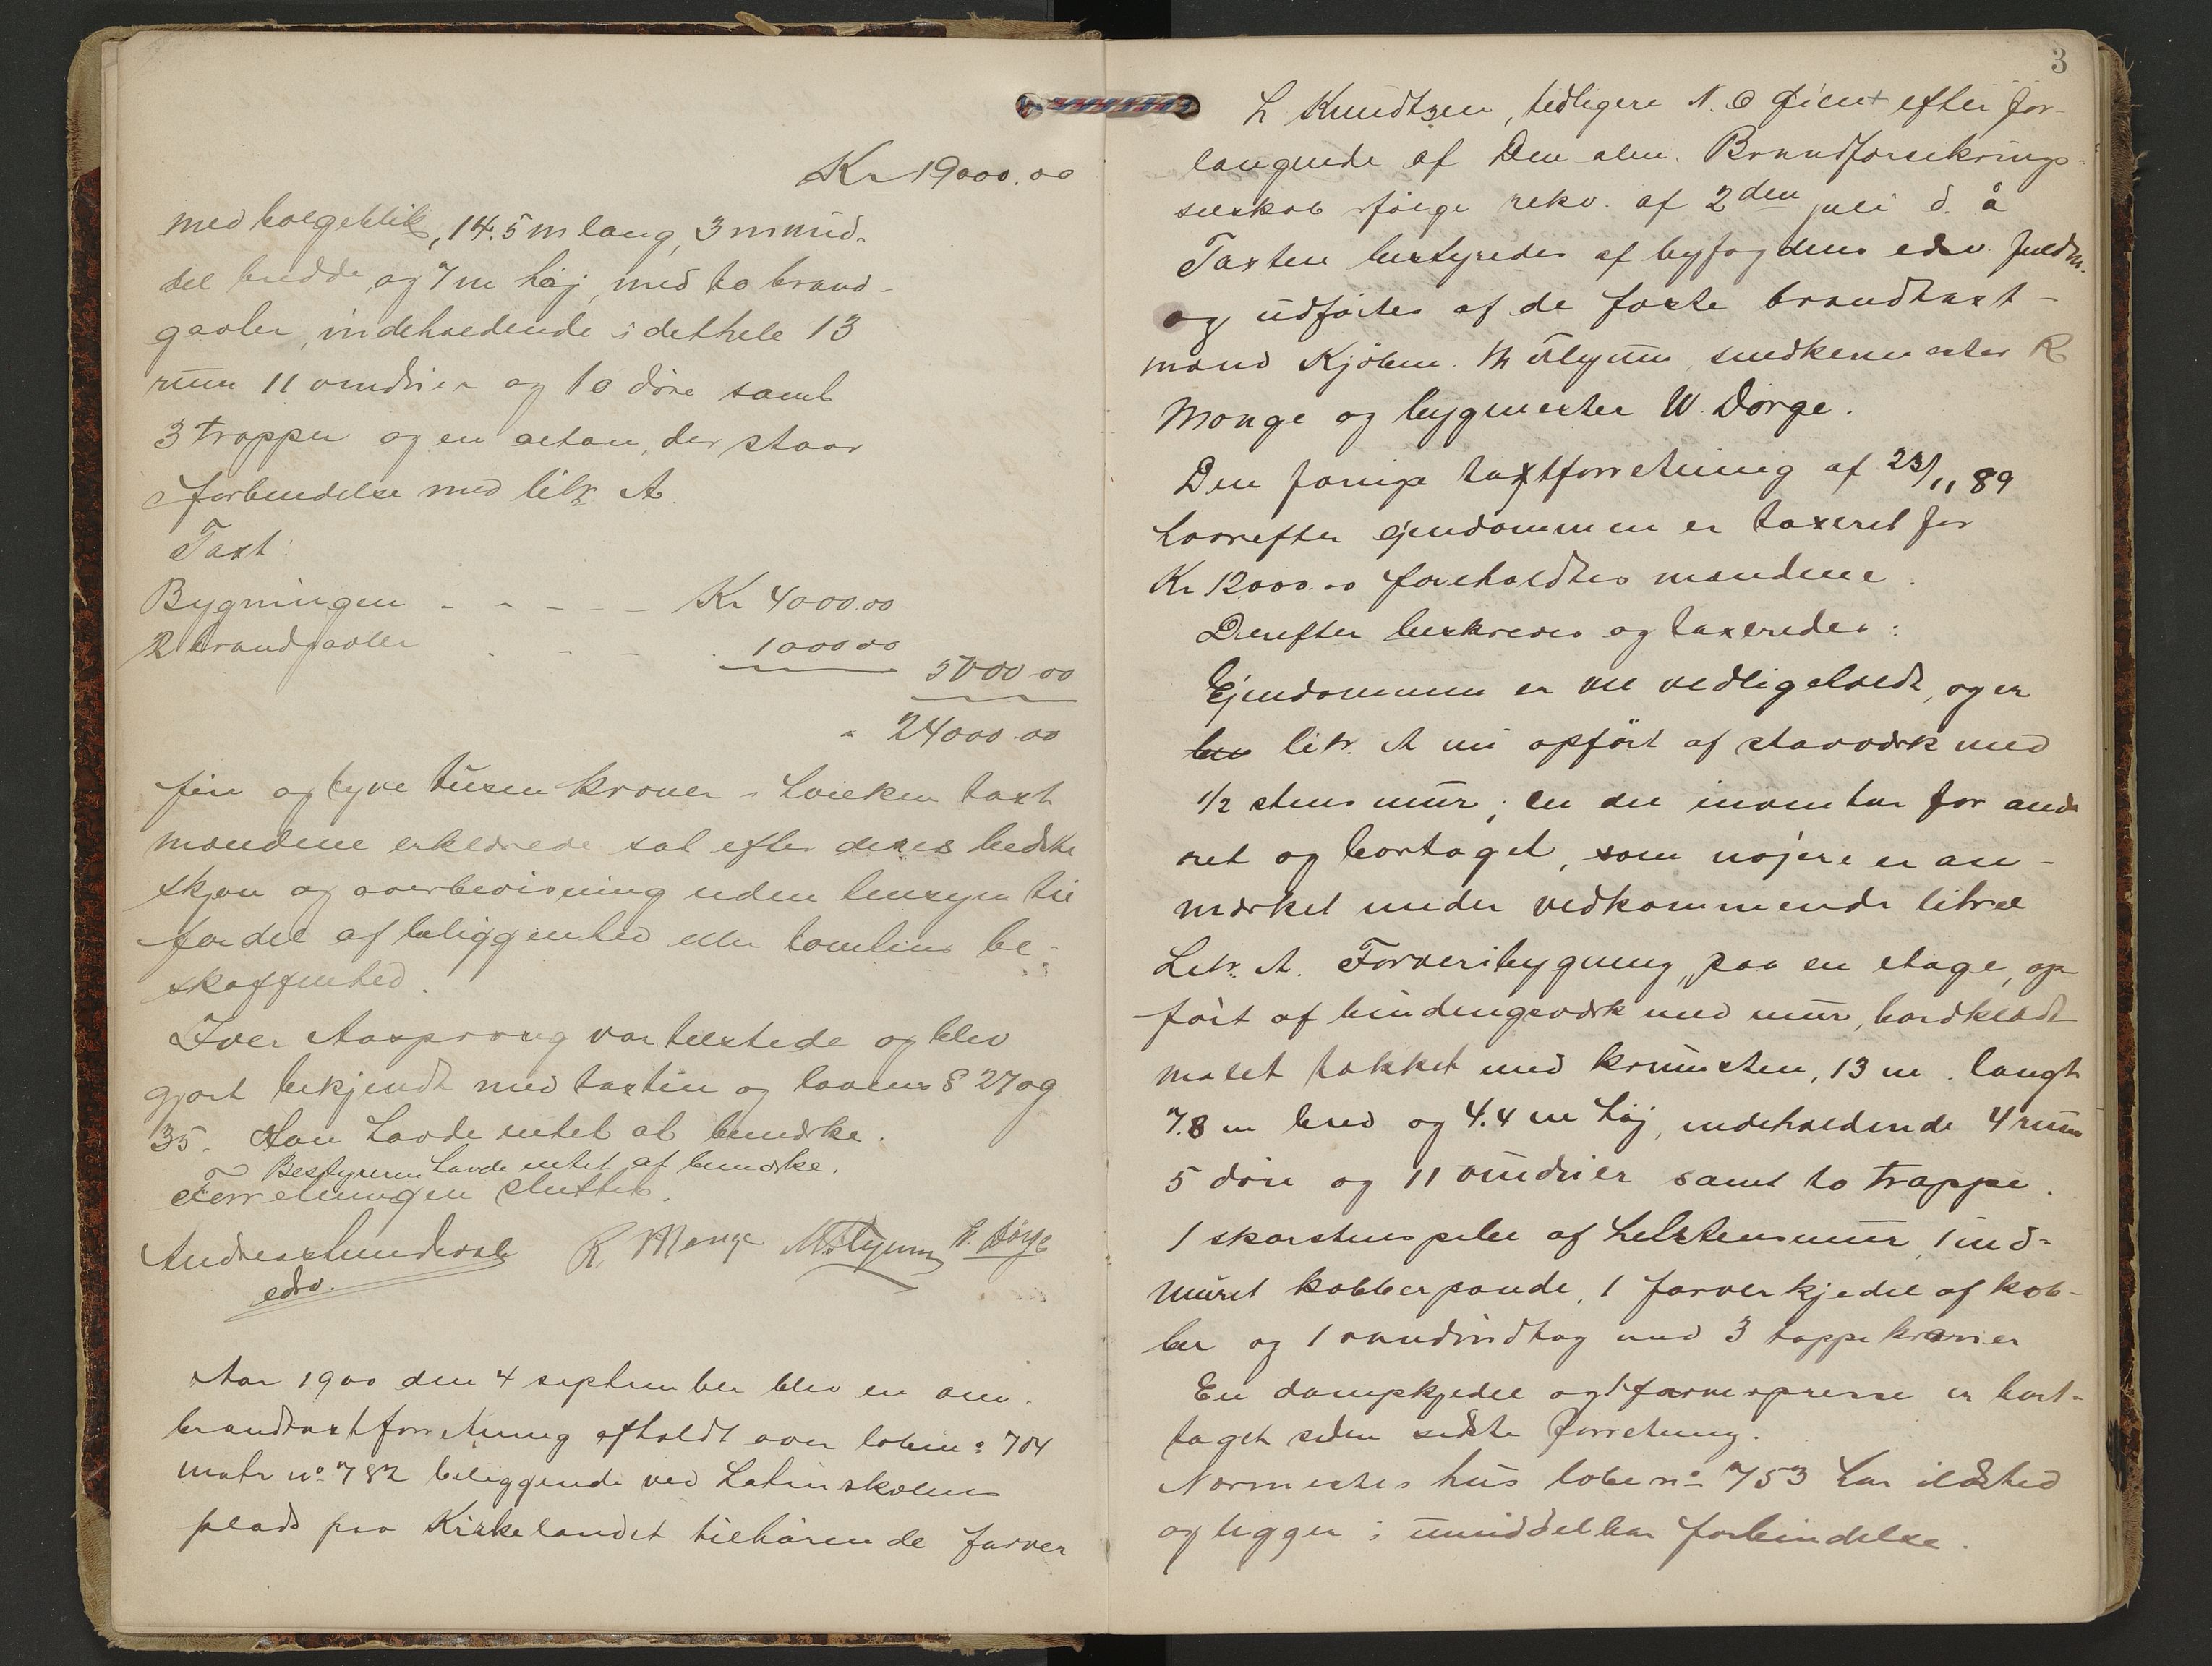 Kr 19000.00
med bølgeblik, 14.5 m lang, 3 m mid-
del bredde og 7 m høj, med to brand-
gavler, indeholdende i det hele 13
rum 11 vinduer og 10 døre samt
3 trapper og en altan, der staar
i forbindelse med litr A.
Taxt:
Bygningen - - - - - Kr 4000.00
2 brandgavler - - - 1000.00
5000.00
" 24000.00
fire og tyve tusen kroner - hvilken taxt
mændene erklærede sat efter deres bedste
skjøn og overbevisning uden hensyn til
fordel af beliggenhed eller tomtens be-
skaffenhed.
Iver Aasprong var tilstede og blev
gjort bekjendt med taxten og lovens § 27 og
35. Han havde intet at bemærke.
Bestyreren havde intet at bemærke.
Forretningen sluttet.
Andreas Lundevall R Monge M Olynn W. Dørge
edsv.
Aar 1900 den 4 september blev en om-
brandtaxtforretning afholdt over løbenº 704
matr nº 782 beliggende ved Latinskolens
plads paa Kirkelandet tilhørende farver
3
L Knudtzen, tidligere N. O Øien + efter for-
langende af Den alm. Brandforsikrings-
selskab ifølge rekv. af 2den juli d. å
Taxten bestyredes af byfogdens edsv. fuldm.
og udførtes af de faste brandtaxt-
mænd Kjøbm. M Olynn, snedkermester R
Monge og bygmester W. Dørge.
Den forrige taxtforretning af 23/11 89
hvorefter ejendommen er taxeret for
Kr 12000.00 foreholdtes mændene.
Derefter beskreves og taxeredes:
Ejendommen er vel vedligeholdt, og er
litr. A nu opført af stavværk med
1/2 stens mur; en del inventar for and-
ret og borttaget, som nøjere er an-
mærket under vedkommende litra
Litr. A. Farveribygning, paa en etage, op-
ført af bindingsværk med mur, bordklædt
malet takket med krumsten, 13 m. langt
7.8 m bred og 4.4 m høj, indeholdende 4 rum
5 døre og 11 vinduer samt to trapper.
1 skorstenspibe af helstensmur, 1 ind-
muret kobberpande, 1 farverkjedel af kob-
ber og 1 vandindtag med 3 tappekraner
En dampkjedel og 1 farverpresse er bort-
taget siden sidste forretning.
Nærmeste hus løbe nº 753 har ildsted
og ligger i umiddelbar forbindelse.